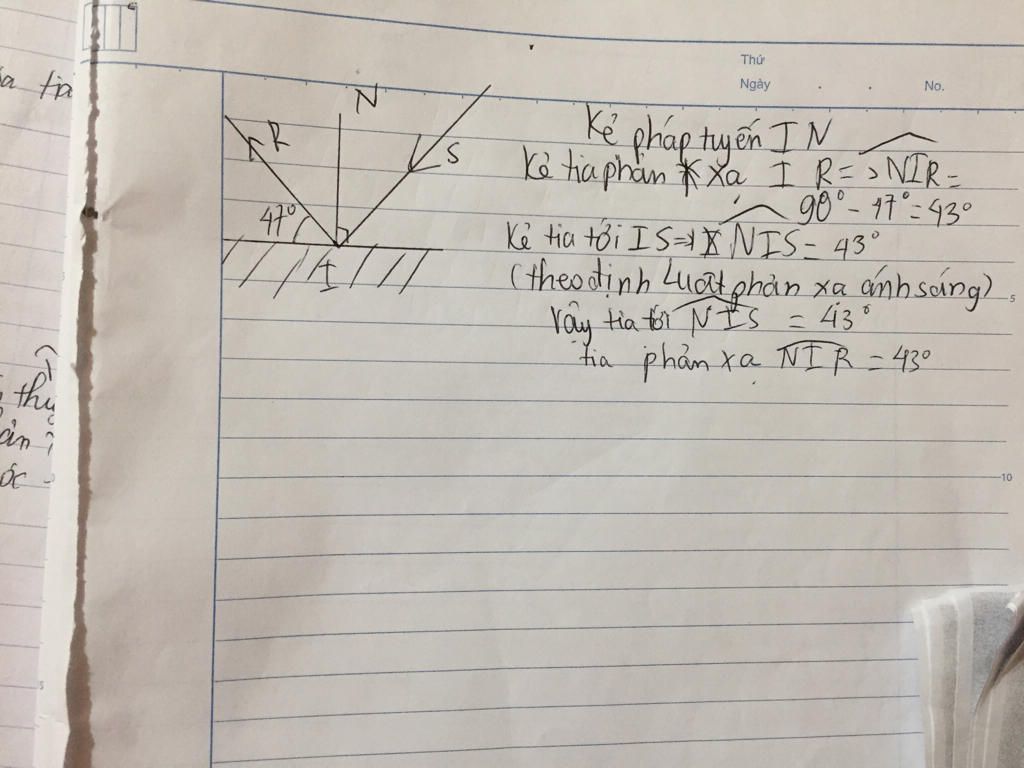 a tia
Thứ
Ngày . . No.
N
R
S
47°
I
Kẻ pháp tuyến IN
Kẻ tia phản xạ I R => NIR =
90° - 47° = 43°
Kẻ tia tới IS => NIS = 43°
(theo định Luật phản xạ ánh sáng)
Vậy tia tới NIS = 43°
tia phản xạ NIR = 43°
5
10